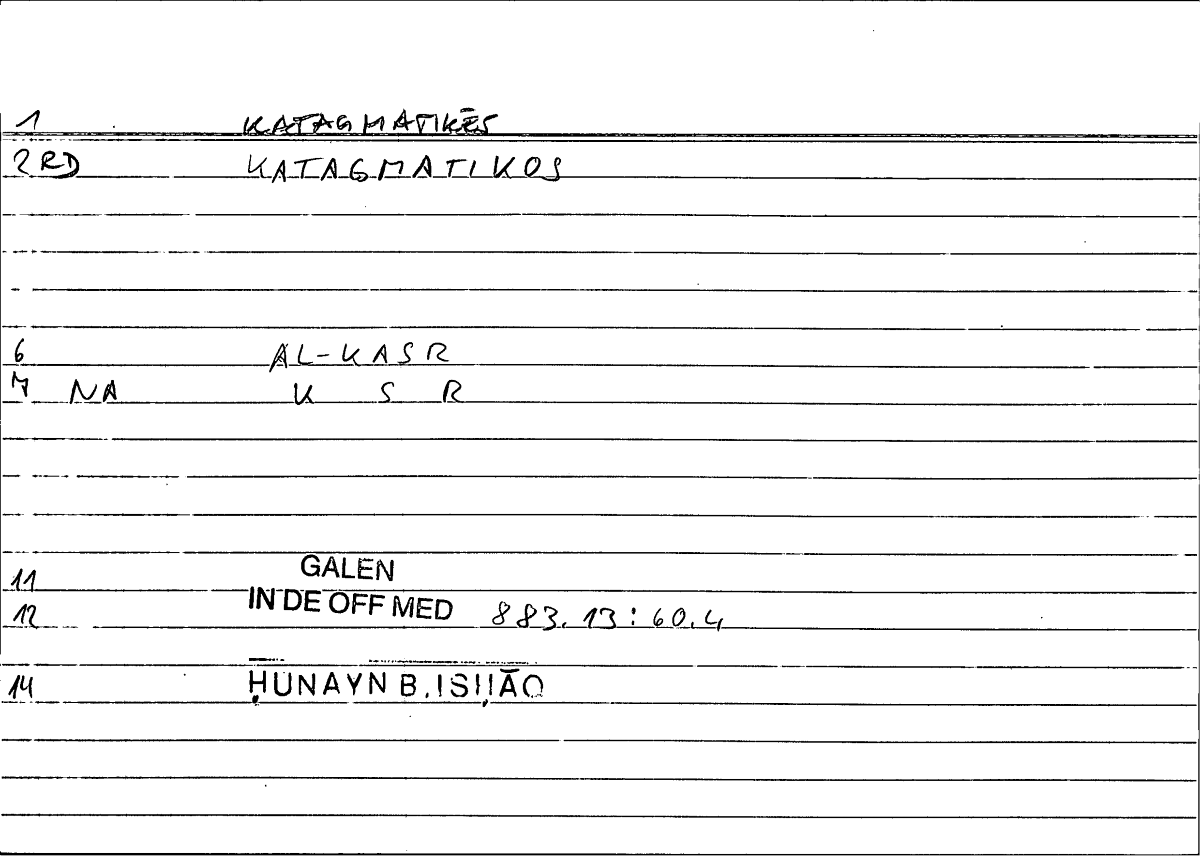 1 KATAGMATIKĒS
2 RD KATAGMATIKOS
6 AL-KASR
7 NA K S R
11 GALEN
12 IN DE OFF MED 883.13:60.4
14 ḤUNAYN B. ISḤĀQ